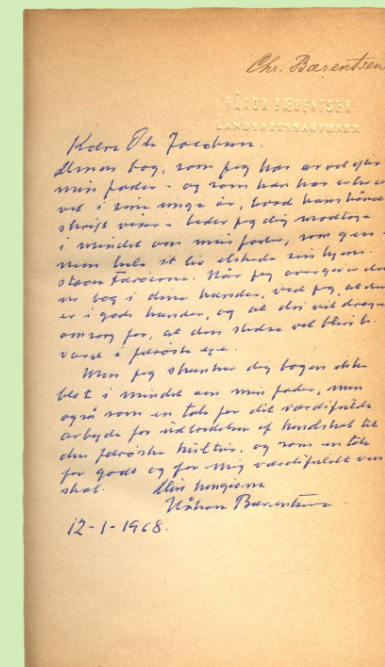 Chr. Bærentsen
HÅKON BÆRENTSEN
LANDSRETSSAGFØRER
Kære Ole Jacobsen.
Denne bog, som jeg har arvet efter
min fader - og som han har erhver
vet i sine unge år, hvad hans hånd
skrift viser - beder jeg dig modtage
i mindet om min fader, som gen-
nem hele sit liv elskede sin hjem-
stavn Færøerne. Når jeg overgiver den
ne bog i dine hænder, ved jeg, at den
er i gode hænder, og at du vil drage
omsorg for, at den stedse vil blive be
varet i færøsk eje.
Men jeg skænker dig bogen ikke
blot i mindet om min fader, men
også som en tak for dit værdifulde
arbejde for udbredelsen af kendskab til
den færøske kultur, og som en tak
for godt og for mig værdifuldt ven
skab.
Din hengivne
Håkon Bærentsen
12-1-1968.